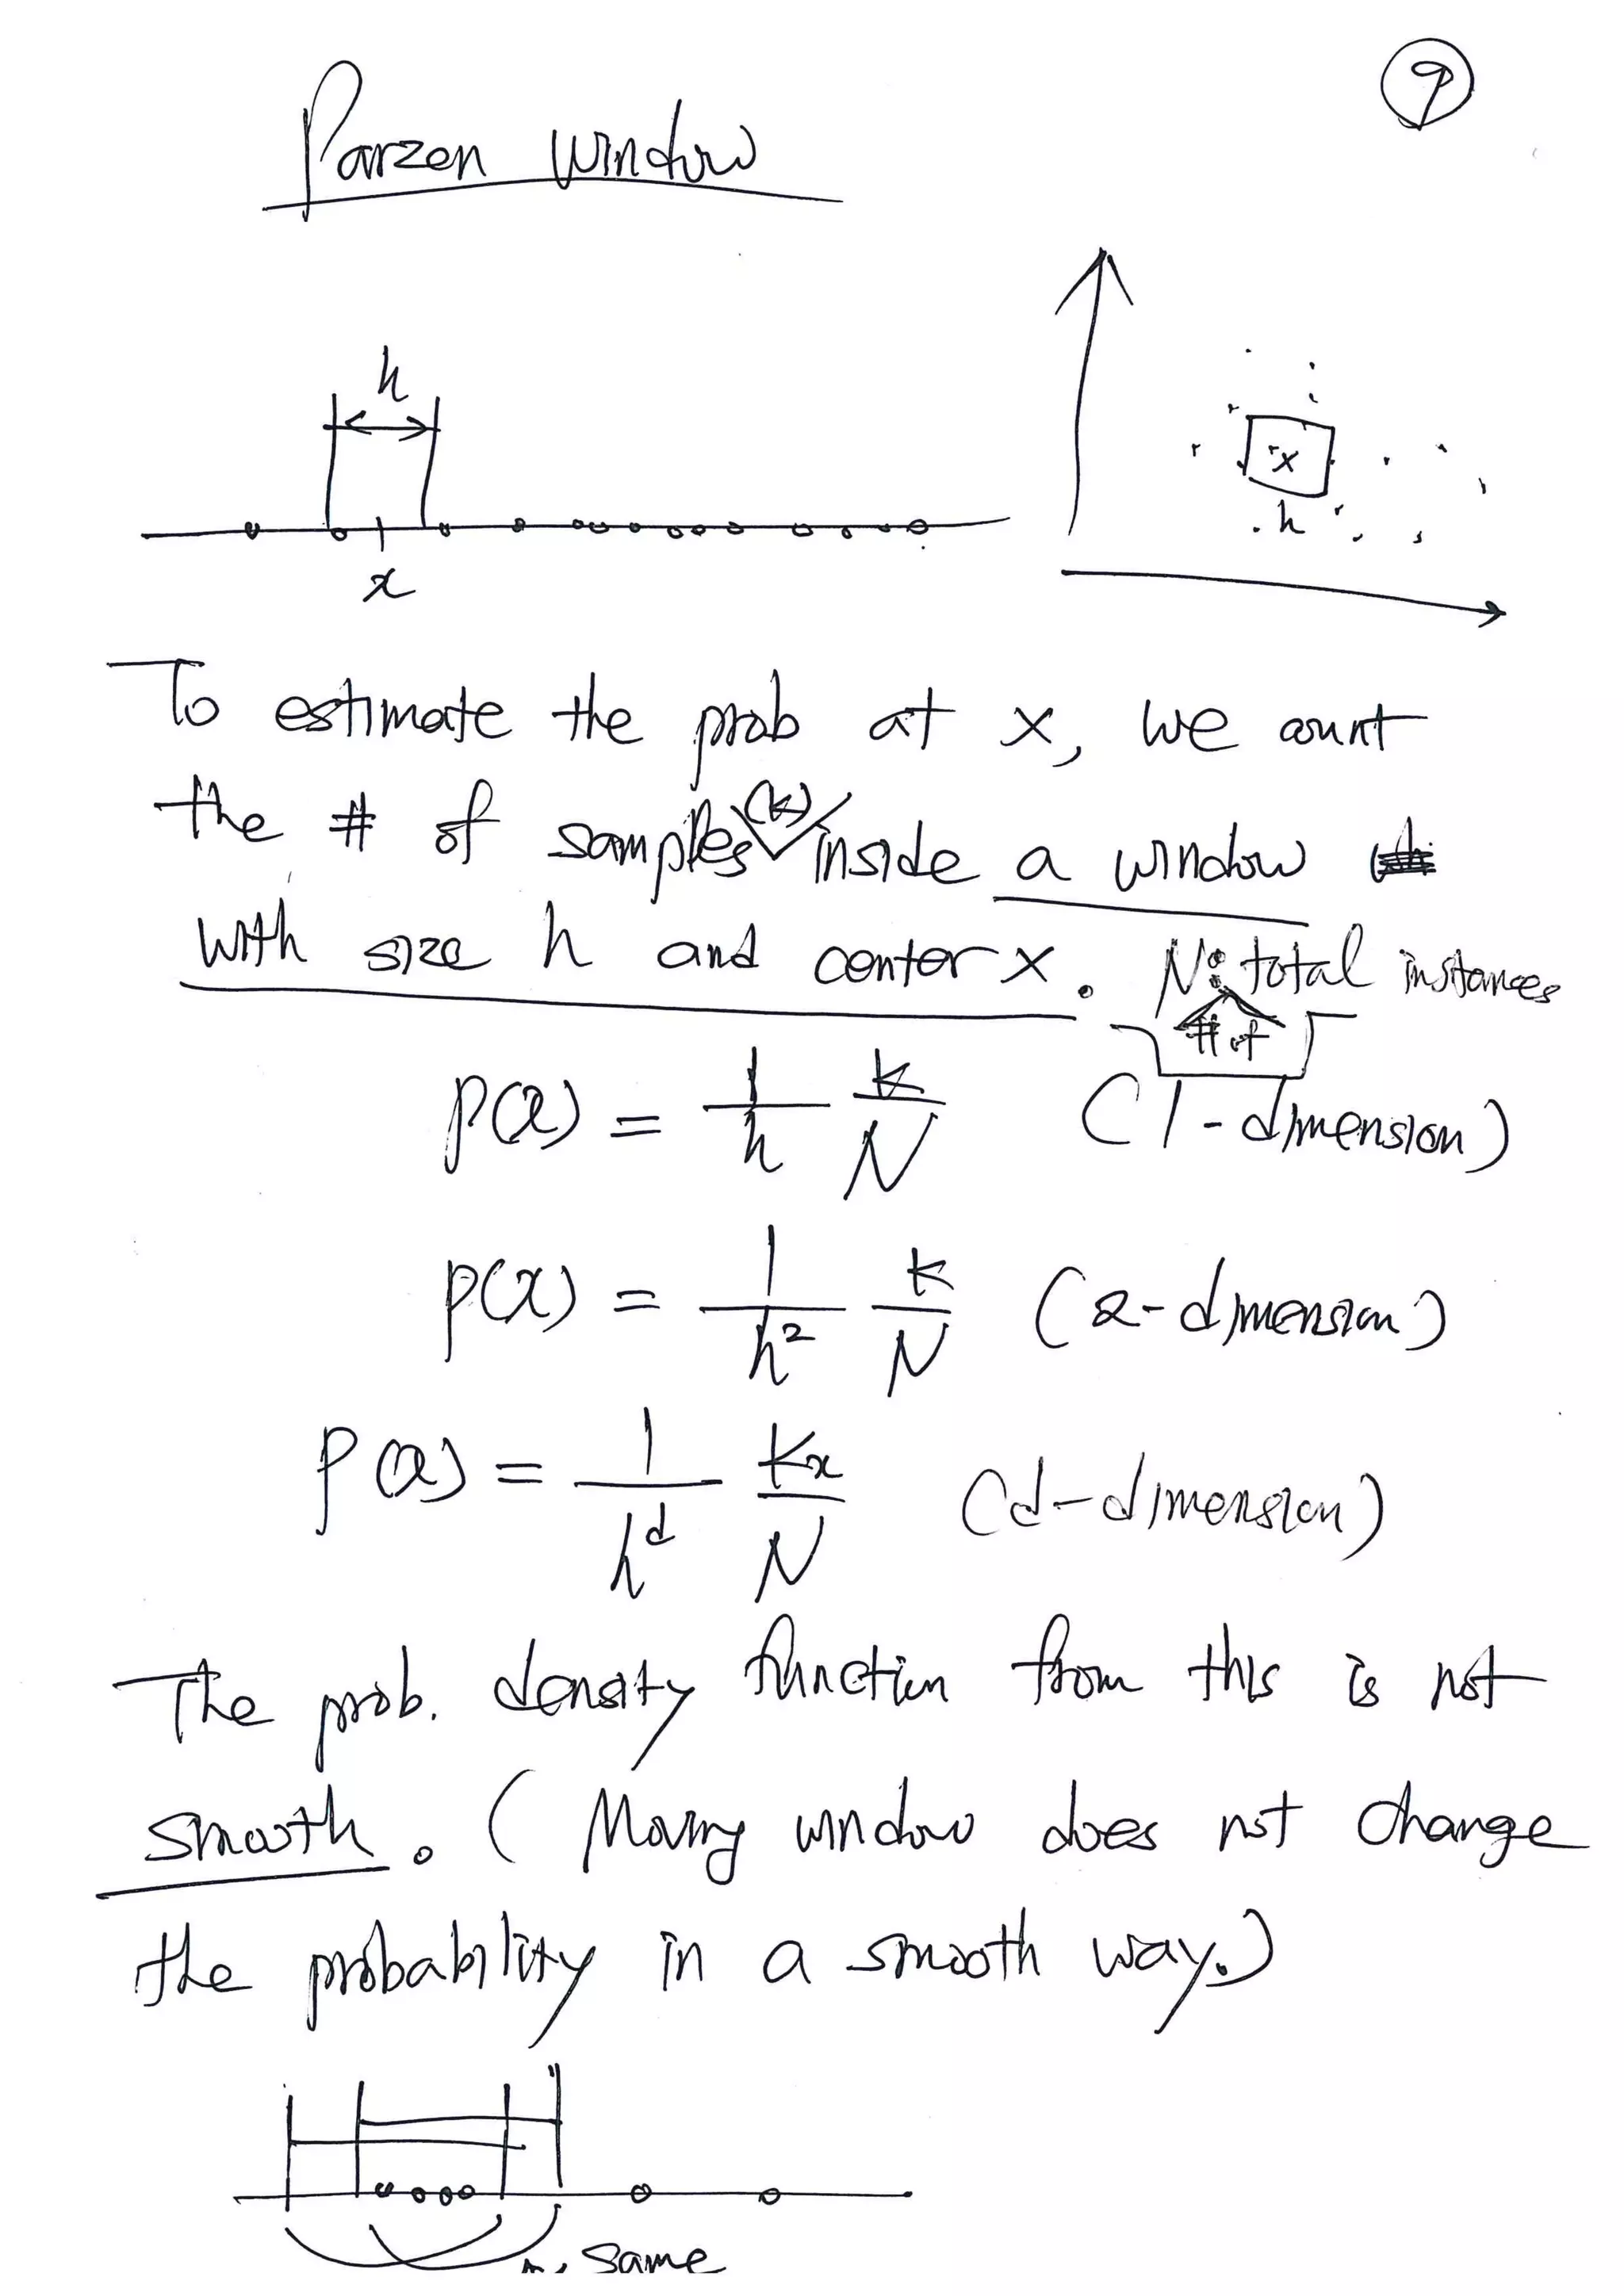 9
Parzen window
h
x
x
h
To estimate the prob at x, we count
the # of samples (k) inside a window
with size h and center x. N: # of total instances
p(x) = 1/h k/N (1-dimension)
p(x) = 1/h² k/N (2-dimension)
p(x) = 1/h^d kx/N (d-dimension)
The prob. density function from this is not
smooth. (Moving window does not change
the probability in a smooth way.)
same